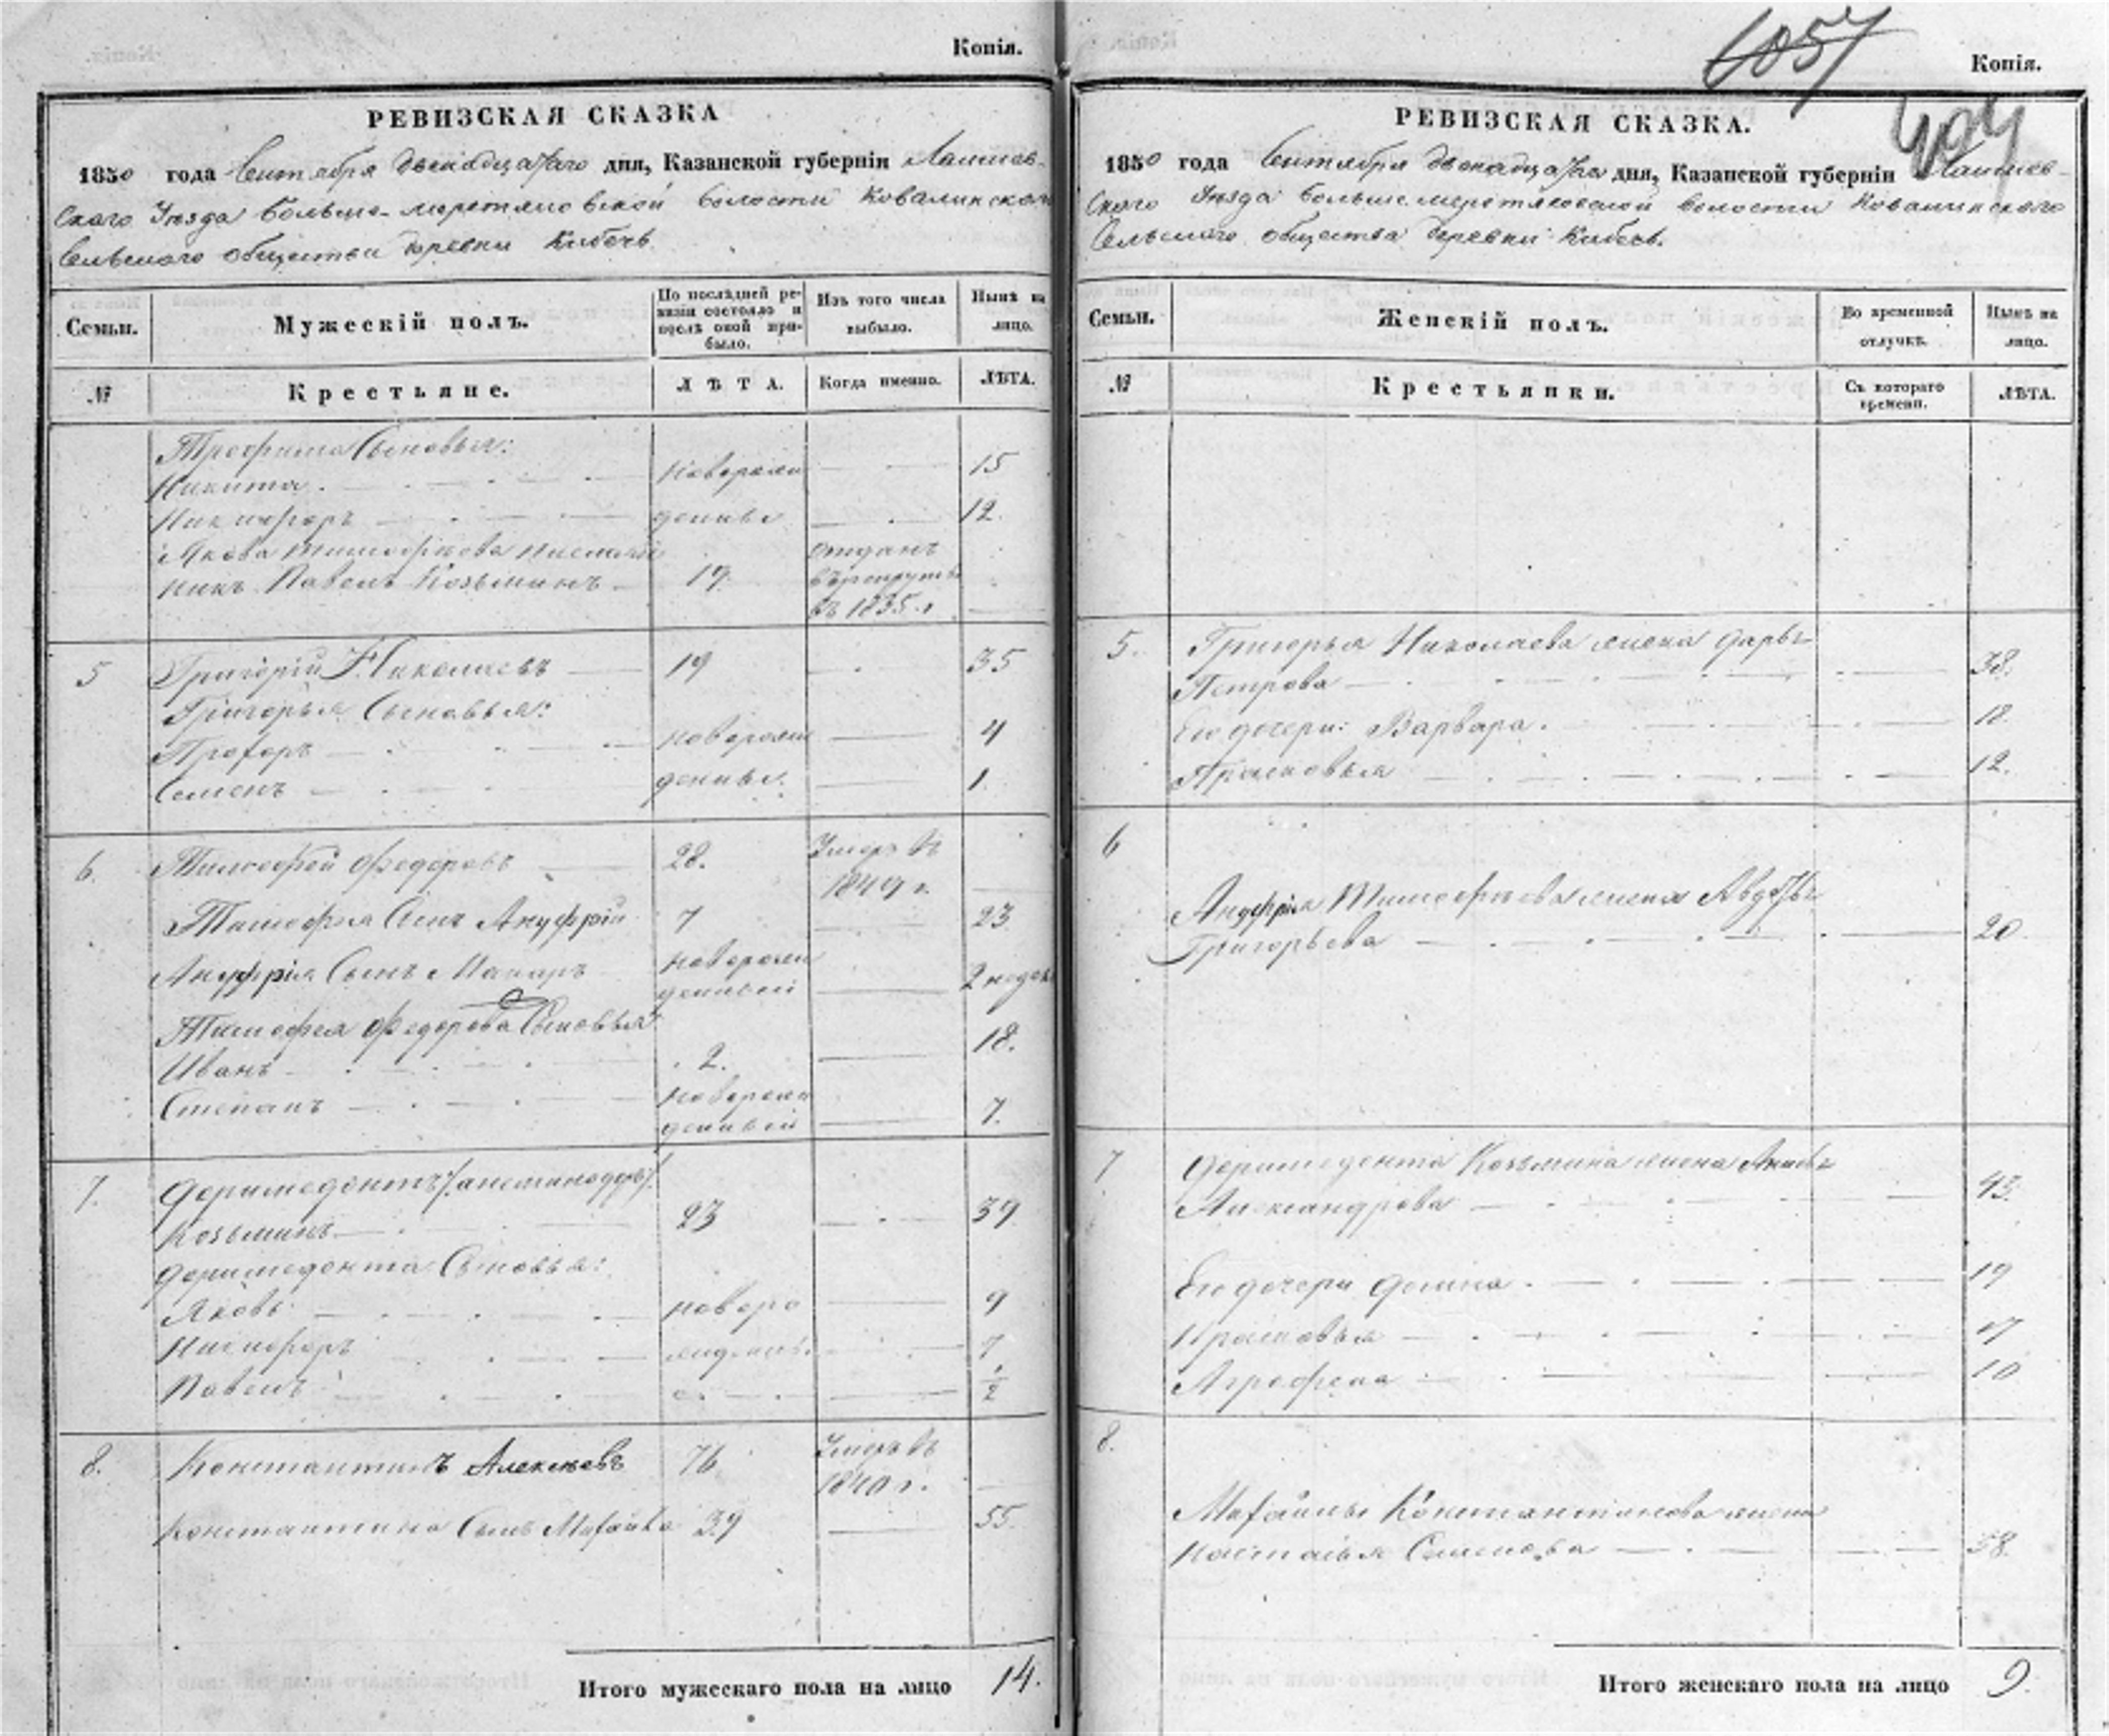 Копія.
РЕВИЗСКАЯ СКАЗКА
1850 года Сентября двенадцатаго дня, Казанской губерніи Лаишев-
скаго Уезда Больше-меретяковской волости Ковалинскаго
Сельскаго общества деревни Кибечь
Семьи.
Мужескій полъ.
По послѣдней ре-
визіи состояло и
послѣ оной при-
было.
Изъ того числа
выбыло.
Нынѣ на
лицо.
№
Крестьяне.
ЛѢТА.
Когда именно.
ЛѢТА.
Трофима Сыновья:
Никита новорож 15
Никифоръ денные 12
Якова Тимофеева племян
никъ Павелъ Козьминъ 19 отданъ в рекруты въ 1835 г
5 Григорій Николаевъ 19 35
Григорья Сыновья:
Прохоръ новорож 4
Семенъ денные. 1
6. Тимофей Федоровъ 28. Умеръ въ 1849 г.
Тимофея Сынъ Ануфрій 7 23
Ануфрія Сынъ Макаръ новорож денный 2 недел
Тимофея Федорова Сыновья
Иванъ 2. 18.
Степанъ новорож денный 7.
7. Деримедонтъ
Козьминъ 23 39
Деримедонта Сыновья:
Яковъ новоро 9
Никифоръ жденны 7
Павелъ е 1/2
8. Константинъ Алексеевъ 76 Умеръ въ 1840 г.
Константина Сынъ Михайла 39 55
Итого мужескаго пола на лицо 14.
1057
404
Копія.
РЕВИЗСКАЯ СКАЗКА.
1850 года Сентября двенадцатаго дня, Казанской губерніи Лаишев-
скаго Уезда Большемеретяковской волости Ковалинскаго
Сельскаго общества деревни Кибечь.
Семьи.
Женскій полъ.
Во временной
отлучкѣ.
Нынѣ на
лицо.
№
Крестьянки.
Съ котораго
времени.
ЛѢТА.
5. Григорья Николаева жена Дарья
Петрова 38.
Его дочери: Варвара 18
Прасковья 12.
6
Ануфрія Тимофеева жена Авдотья
Григорьева 20
7 Деримедонта Козьмина жена
Александрова 43.
Его дочери Домна 19
Прасковья 17
Аграфена 10
8.
Михайлы Константинова жена
Настасья Семенова 58.
Итого женскаго пола на лицо 9.